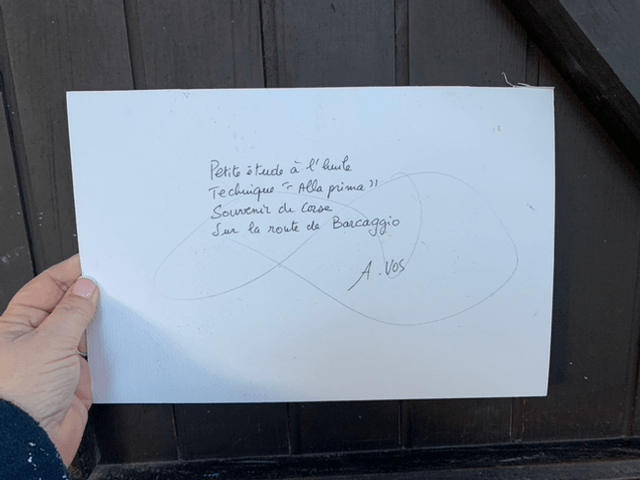 Petite étude à l'huile
Technique "Alla prima"
Souvenir de Corse
Sur la route de Barcaggio
A. VOS